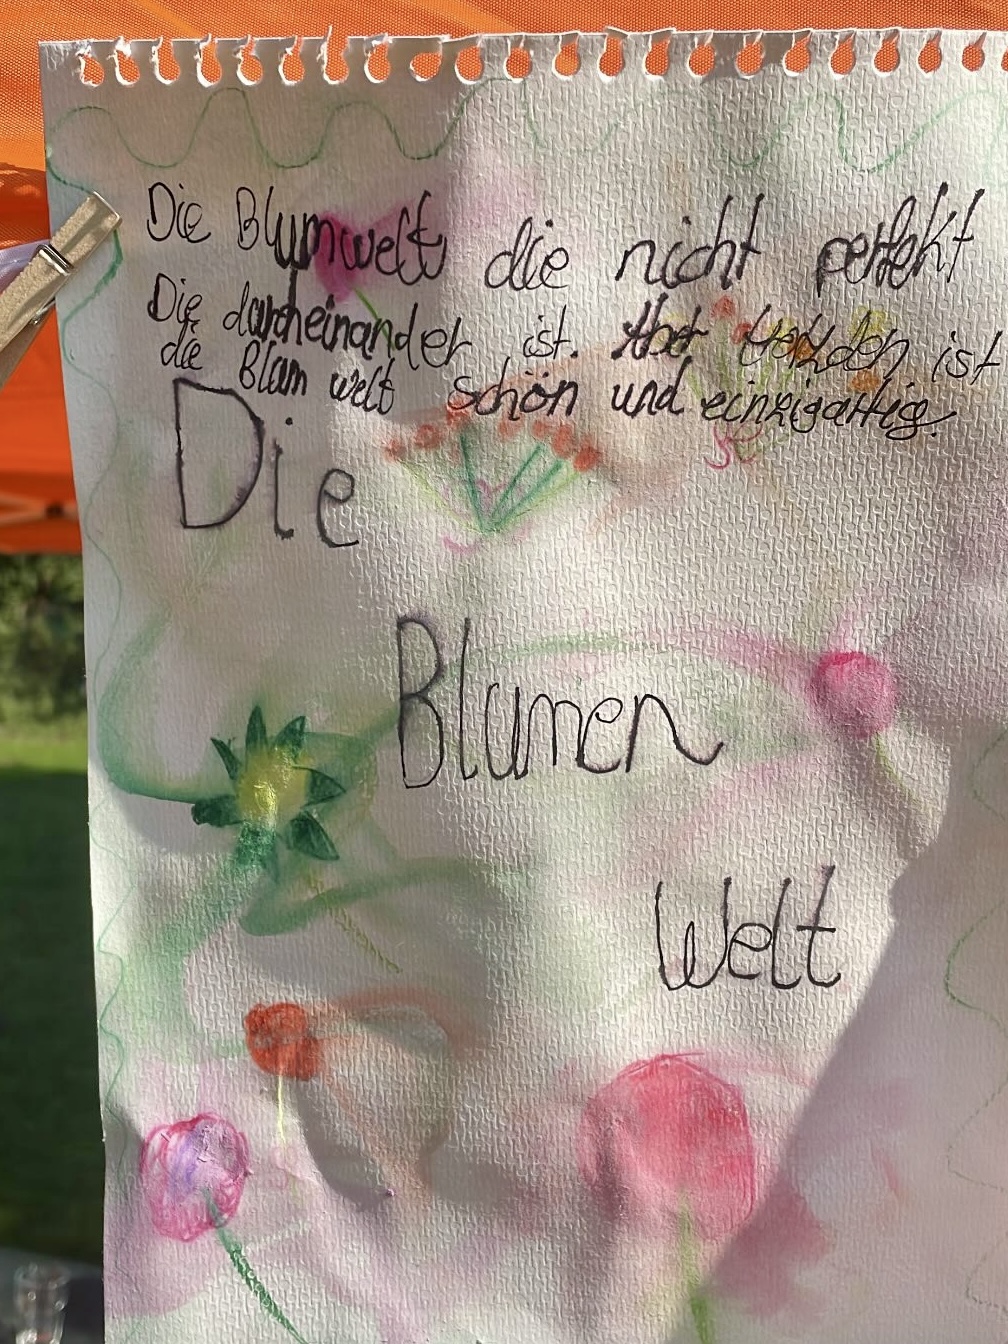 Die Blumwelt die nicht perfekt
Die durcheinander ist. Aber ist
die Blum welt schön und einzigartig.
Die
Blumen
Welt